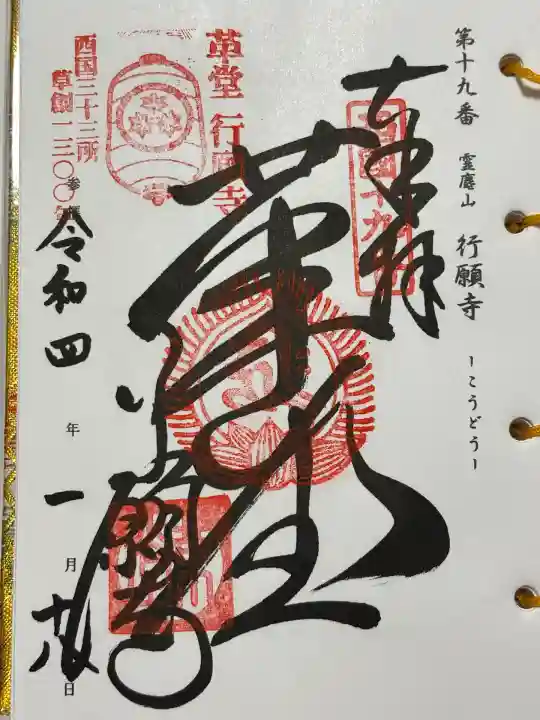 第十九番 霊麀山 行願寺 ーこうどうー
奉拝
西国十九番
革堂
行願寺
革堂 行願寺
西国三十三所
草創一三〇〇年
令和四年一月十八日